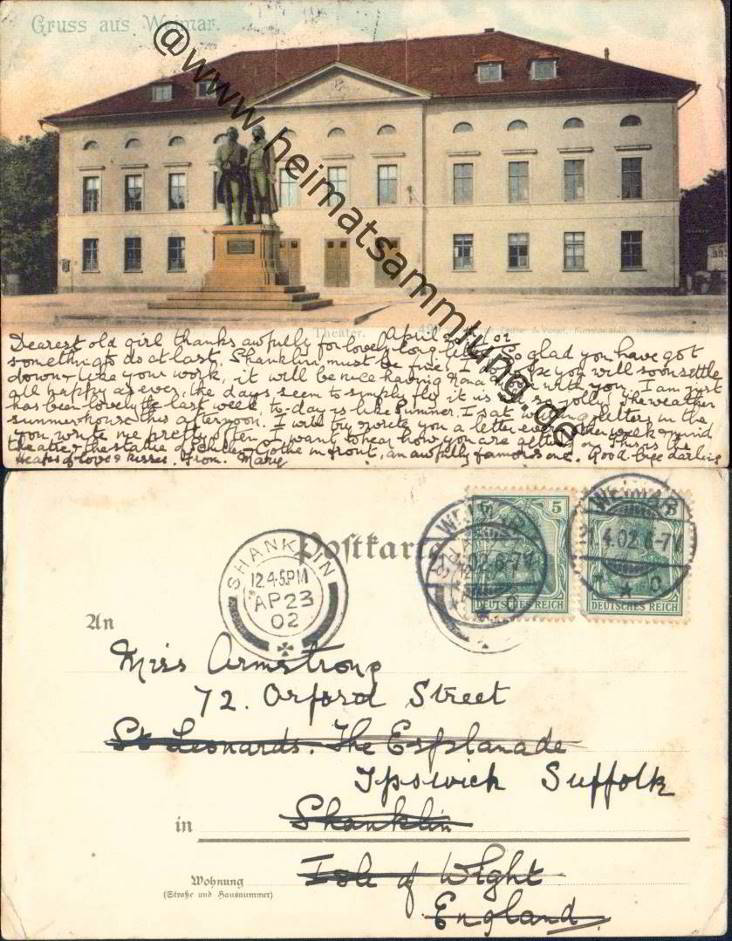 Gruss aus Weimar.
@www.heimatsammlung.de
Theater.
April 20th/02
Dearest old girl thanks awfully for lovely long letter. So glad you have got
something to do at last. Shanklin must be fine. I do hope you will soon settle
down & like your work, it will be nice having Nona with you. I am just
as happy as ever, the days seem to simply fly it is so jolly. The weather
has been lovely the last week, to-day is like summer. I sat writing letters in the
summerhouse this afternoon. I will try & write you a letter every other week & mind
you write me pretty often. I want to hear how you are getting on. This is the
theatre & the statue of Schiller & Göthe in front, an awfully famous one. Good-bye darling
Heaps of love & kisses. From. Marie
Postkarte
SHANKLIN
12.45PM
AP23
02
WEIMAR
21.4.02.6-7V.
5
DEUTSCHES REICH
WEIMAR
21.4.02.6-7V.
5
DEUTSCHES REICH
An
Miss Armstrong
72. Orford Street
St Leonards. The Esplanade
Ipswich Suffolk
in
Shanklin
Wohnung
(Straße und Hausnummer)
Isle of Wight
England